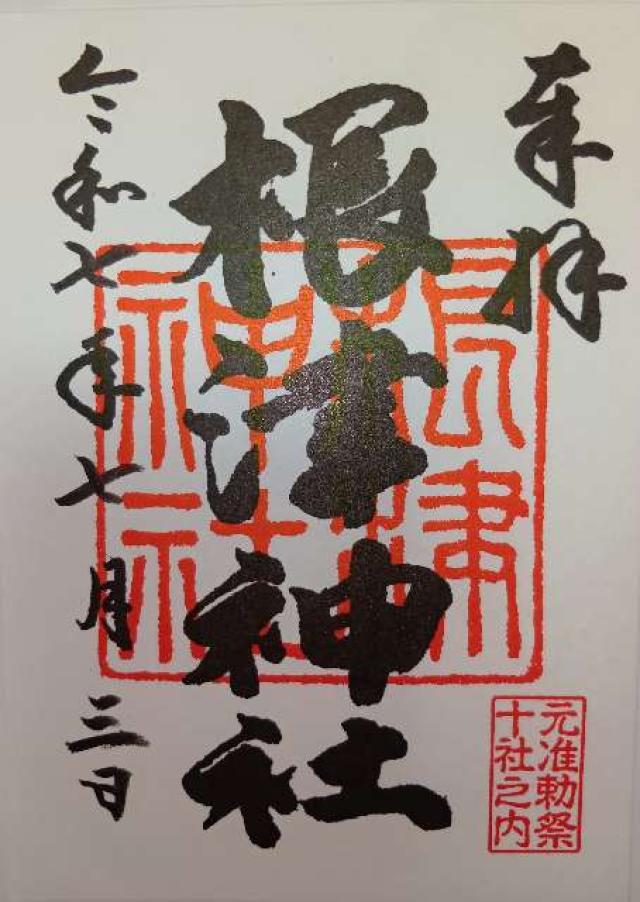 奉拝
根津神社
根津
神社
元准勅祭
十社之内
令和七年七月三日